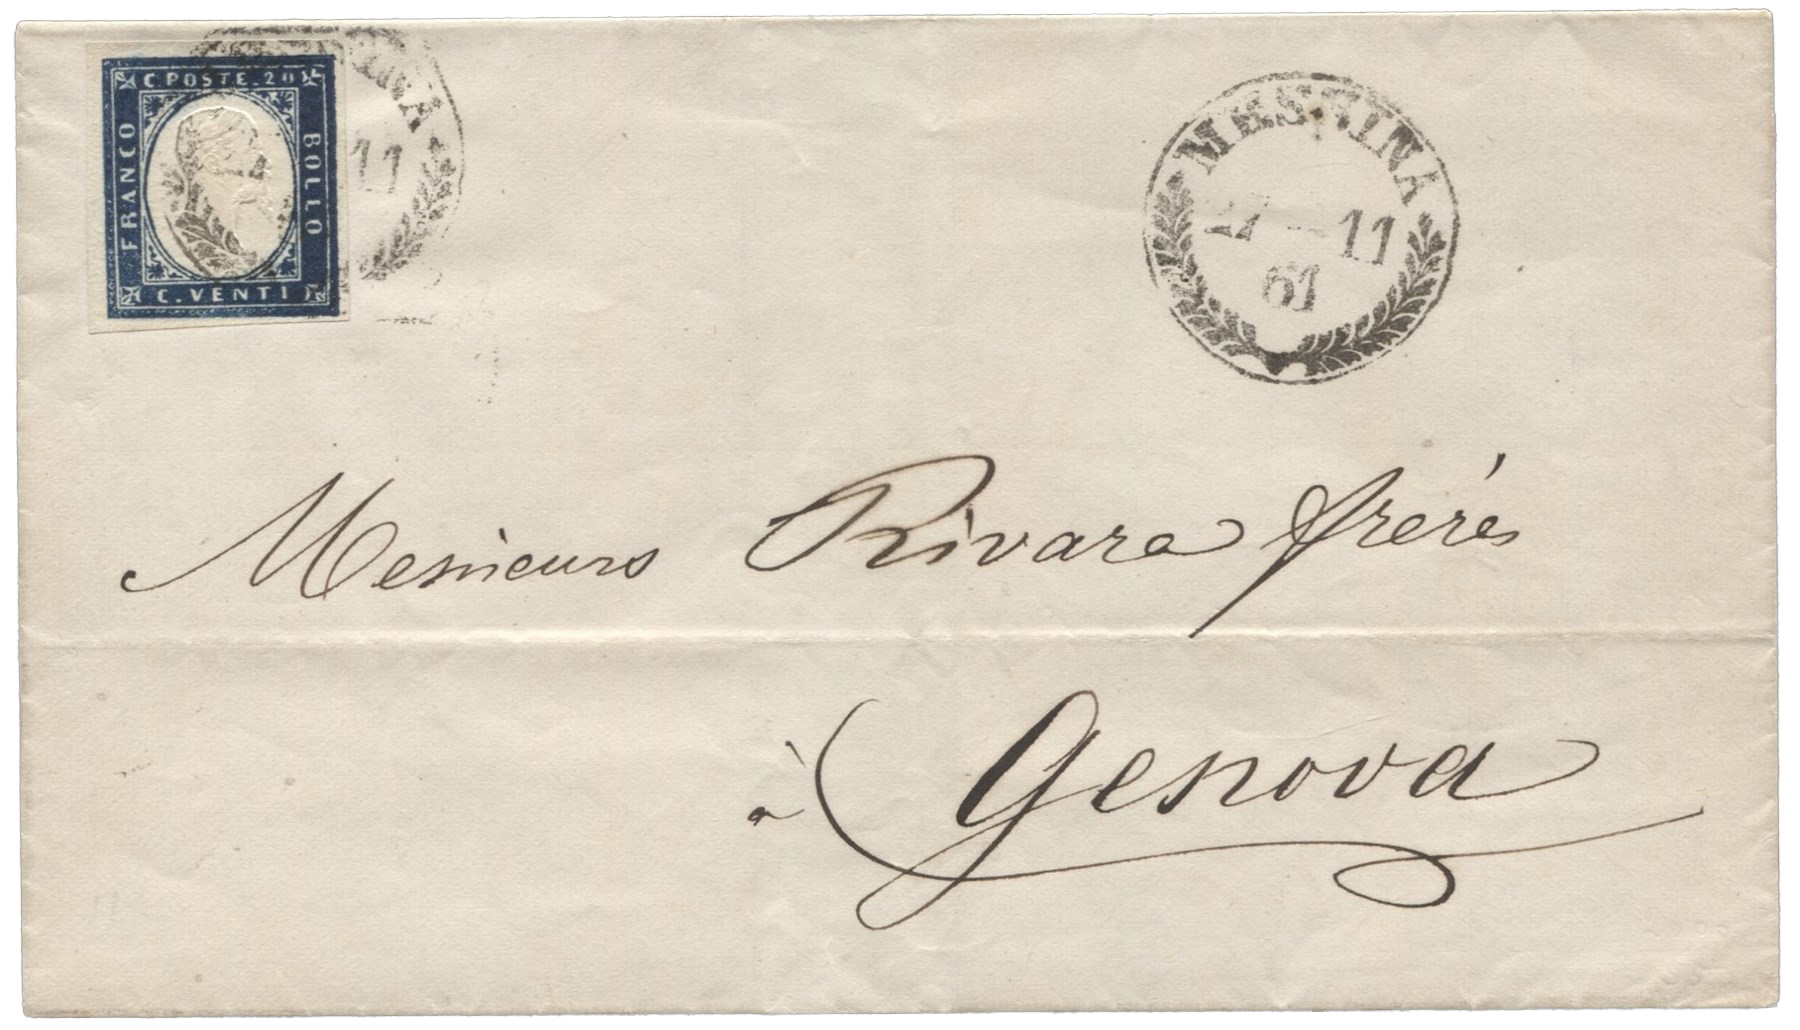 C. POSTE. 20
FRANCO
BOLLO
C. VENTI
11
MESSINA
11
61
Messieurs Rivara frères
à Genova